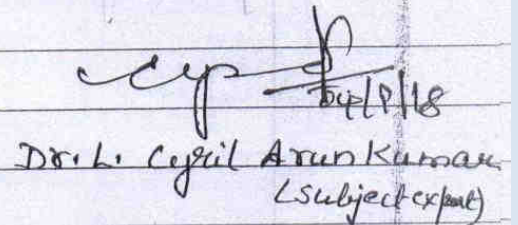 04/9/18
Dr. L. Cyril Arun Kumar
(Subject expert)